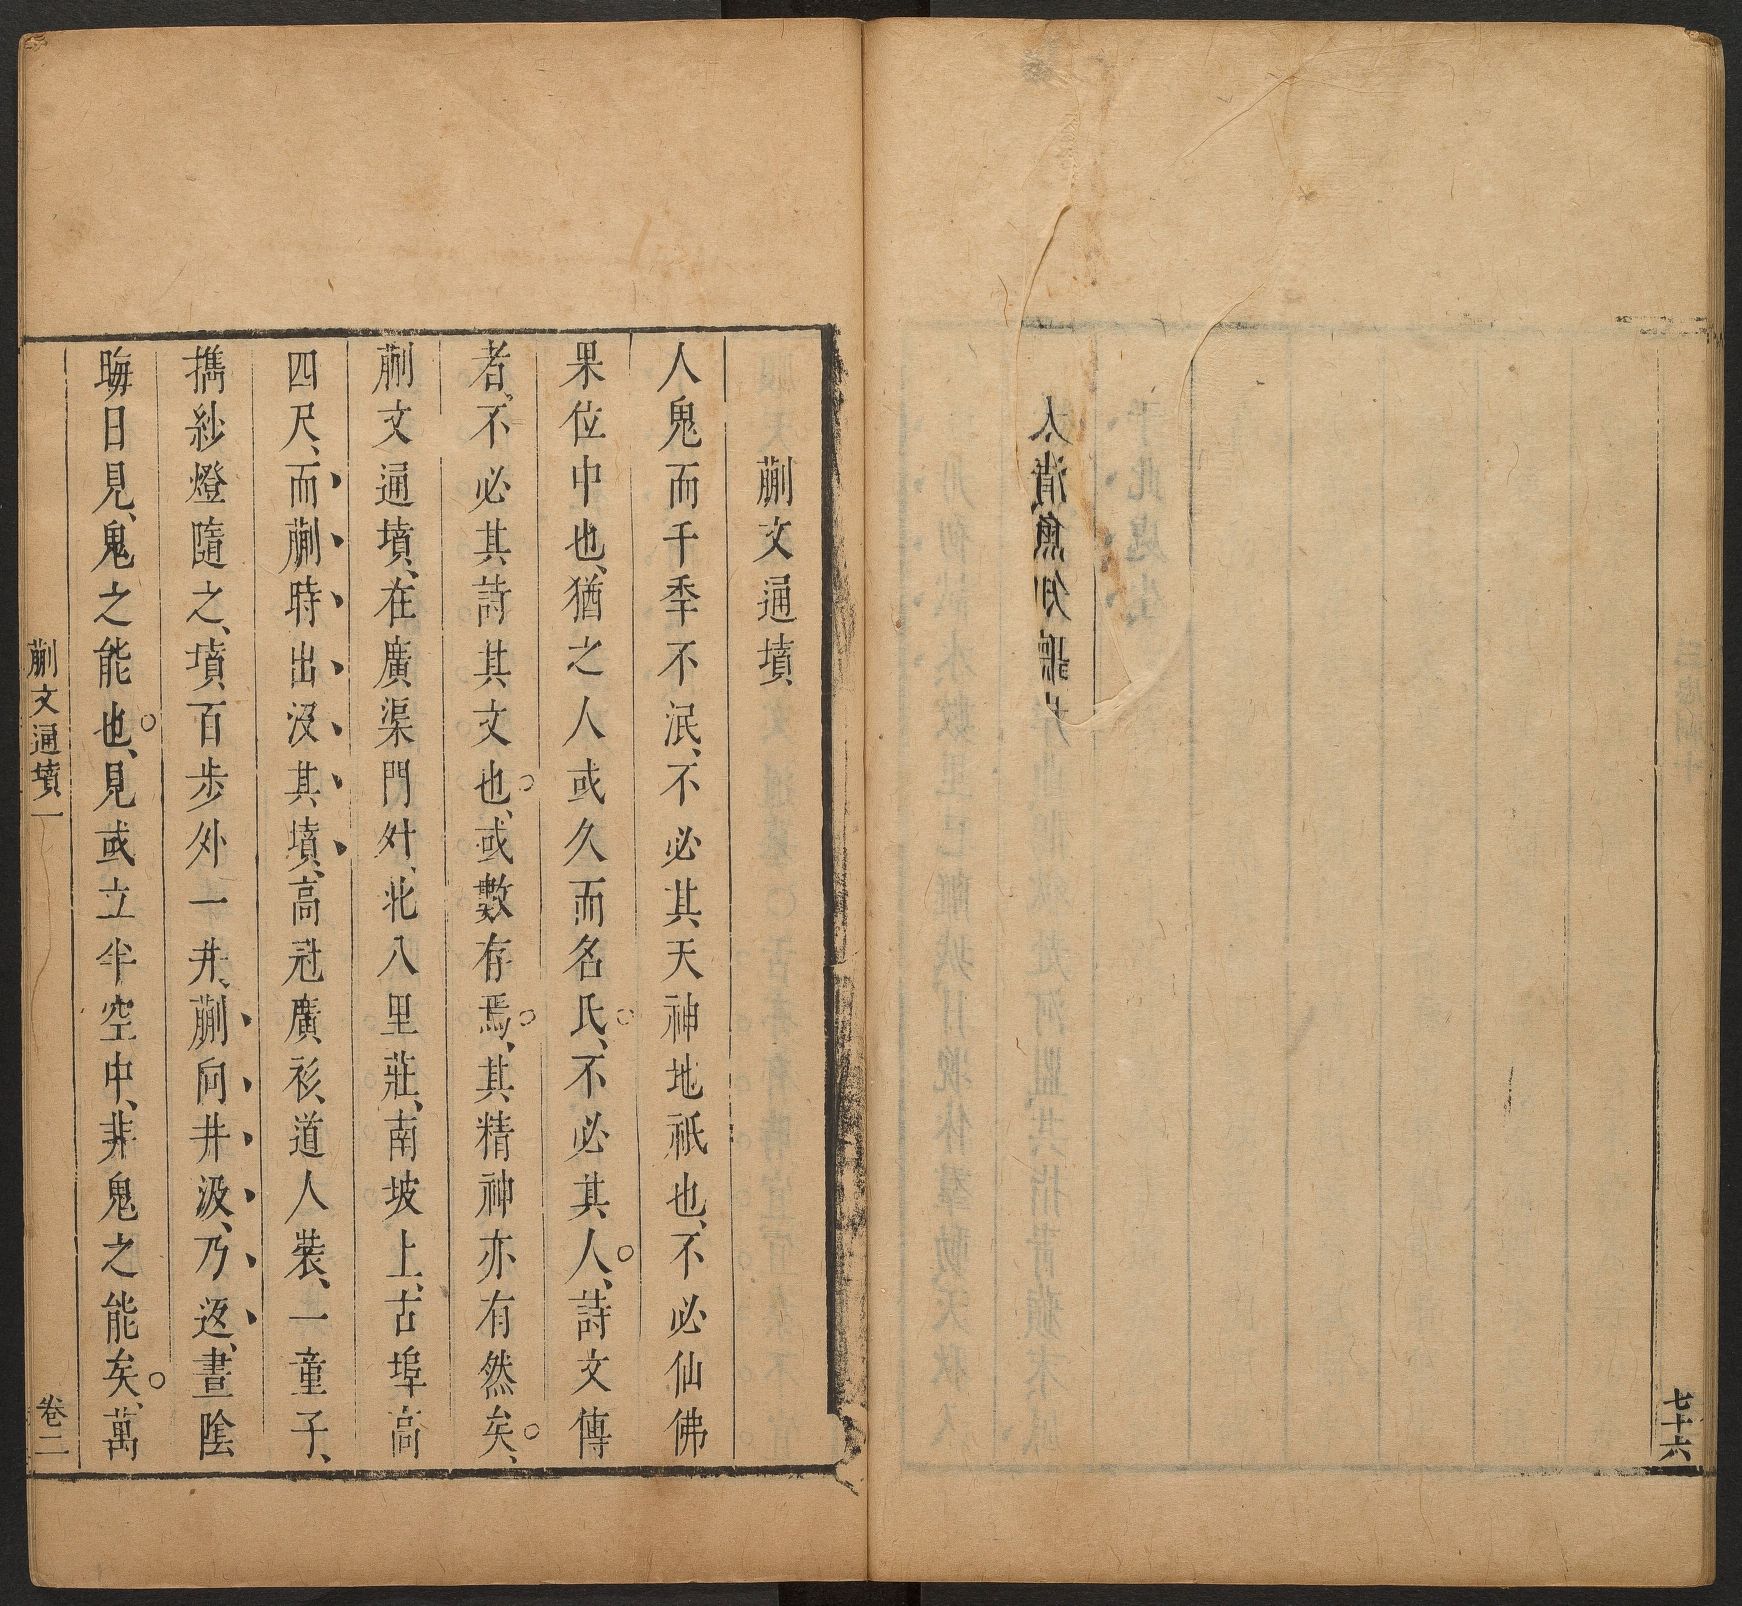 七十六
蒯文通墳
人鬼而千季不泯、不必其天神地祇也、不必仙佛
果位中也、猶之人或久而名氏、不必其人、詩文傳
者、不必其詩其文也、或數存焉、其精神亦有然矣、
蒯文通墳、在廣渠門外、北八里莊、南坡上、古埠高
四尺、而蒯時出沒其墳、高冠廣衫、道人裝、一童子、
攜紗燈隨之、墳百步外一井、蒯向井汲、乃返、晝陰
晦日見、鬼之能也、見或立半空中、非鬼之能矣、萬
蒯文通墳一
卷二